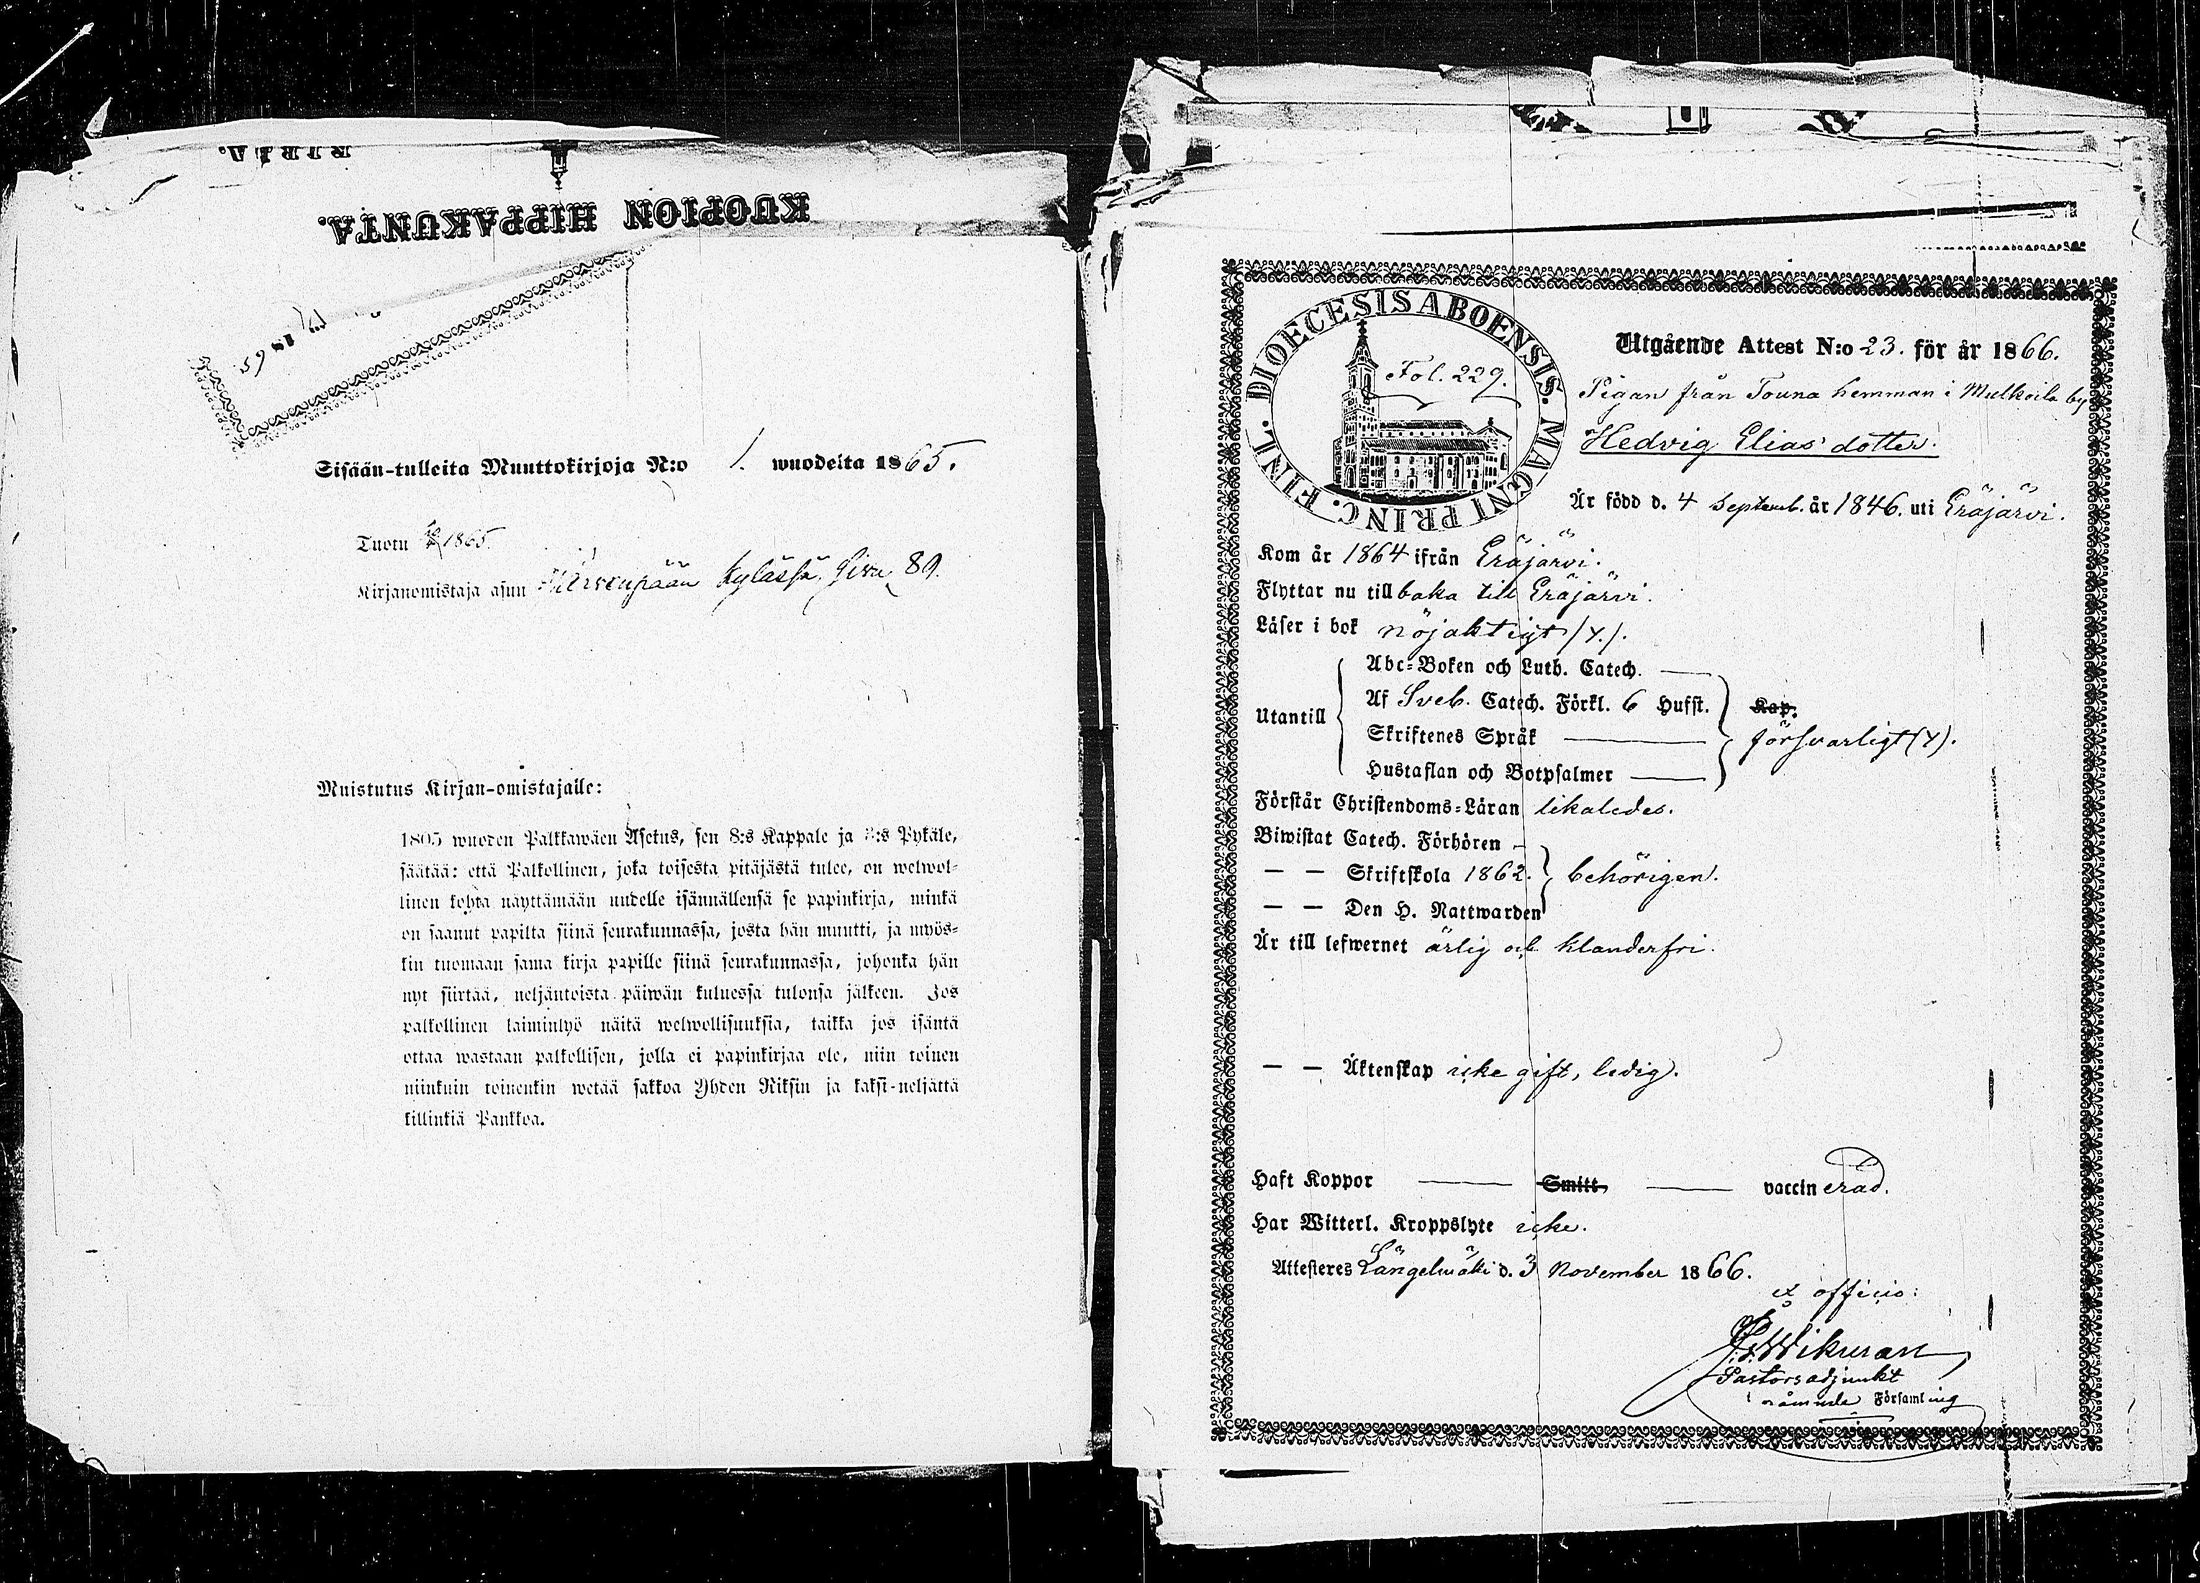 KIRJA.
KUOPION HIPPAKUNTA.
1865.
Sisään-tulleita Muuttokirjoja N:o 1. wuodelta 1865.
Tuotu 1865.
Kirjanomistaja asuu kylässä, Sivu 89.
Muistutus Kirjan-omistajalle:
1805 wuoden Palkkawäen Asetus, sen 8:s Kappale ja :s Pykäle,
säätää: että Palkollinen, joka toisesta pitäjästä tulee, on welwol-
linen kohta näyttämään uudelle isännällensä se papinkirja, minkä
on saanut papilta siinä seurakunnassa, josta hän muutti, ja myös-
kin tuomaan sama kirja papille siinä seurakunnassa, johonka hän
nyt siirtää, neljäntoista päiwän kuluessa tulonsa jälkeen. Jos
palkollinen laiminlyö näitä welwollisuuksia, taikka jos isäntä
ottaa wastaan palkollisen, jolla ei papinkirjaa ole, niin toinen
niinkuin toinenkin wetää sakkoa Yhden Riksin ja kaksi-neljättä
killinkiä Pankkoa.
DIOECESIS ABOENSIS. MAGNI PRINC. FINL.
Fol. 229.
Utgående Attest N:o 23. för år 1866.
Pigan från Touna hemman i Mulkoila by
Hedvig Elias dotter.
Är född d. 4 Septemb. år 1846. uti Eräjärvi.
Kom år 1864 ifrån Eräjärvi.
Flyttar nu tillbaka till Eräjärvi.
Läser i bok nöjaktigt (y.).
Abc-Boken och Luth. Catech.
Utantill
Af Sveb. Catech. Förkl. 6 Hufst. Kap.
Skriftenes Språk försvarligt (y).
Hustaflan och Botpsalmer
Förstår Christendoms-Läran likaledes.
Biwistat Catech. Förhören
— — Skriftskola 1862. behörigen.
— — Den H. Nattwarden
Är till lefwernet ärlig och klanderfri.
— — Äktenskap icke gift, ledig.
Haft Koppor — Smitt, — vaccinerad.
Har Witterl. Kroppslyte icke.
Attesteres Längelmäki d. 3 November 1866.
ex officio:
Wikman
Pastorsadjunkt
i nämnde Församling